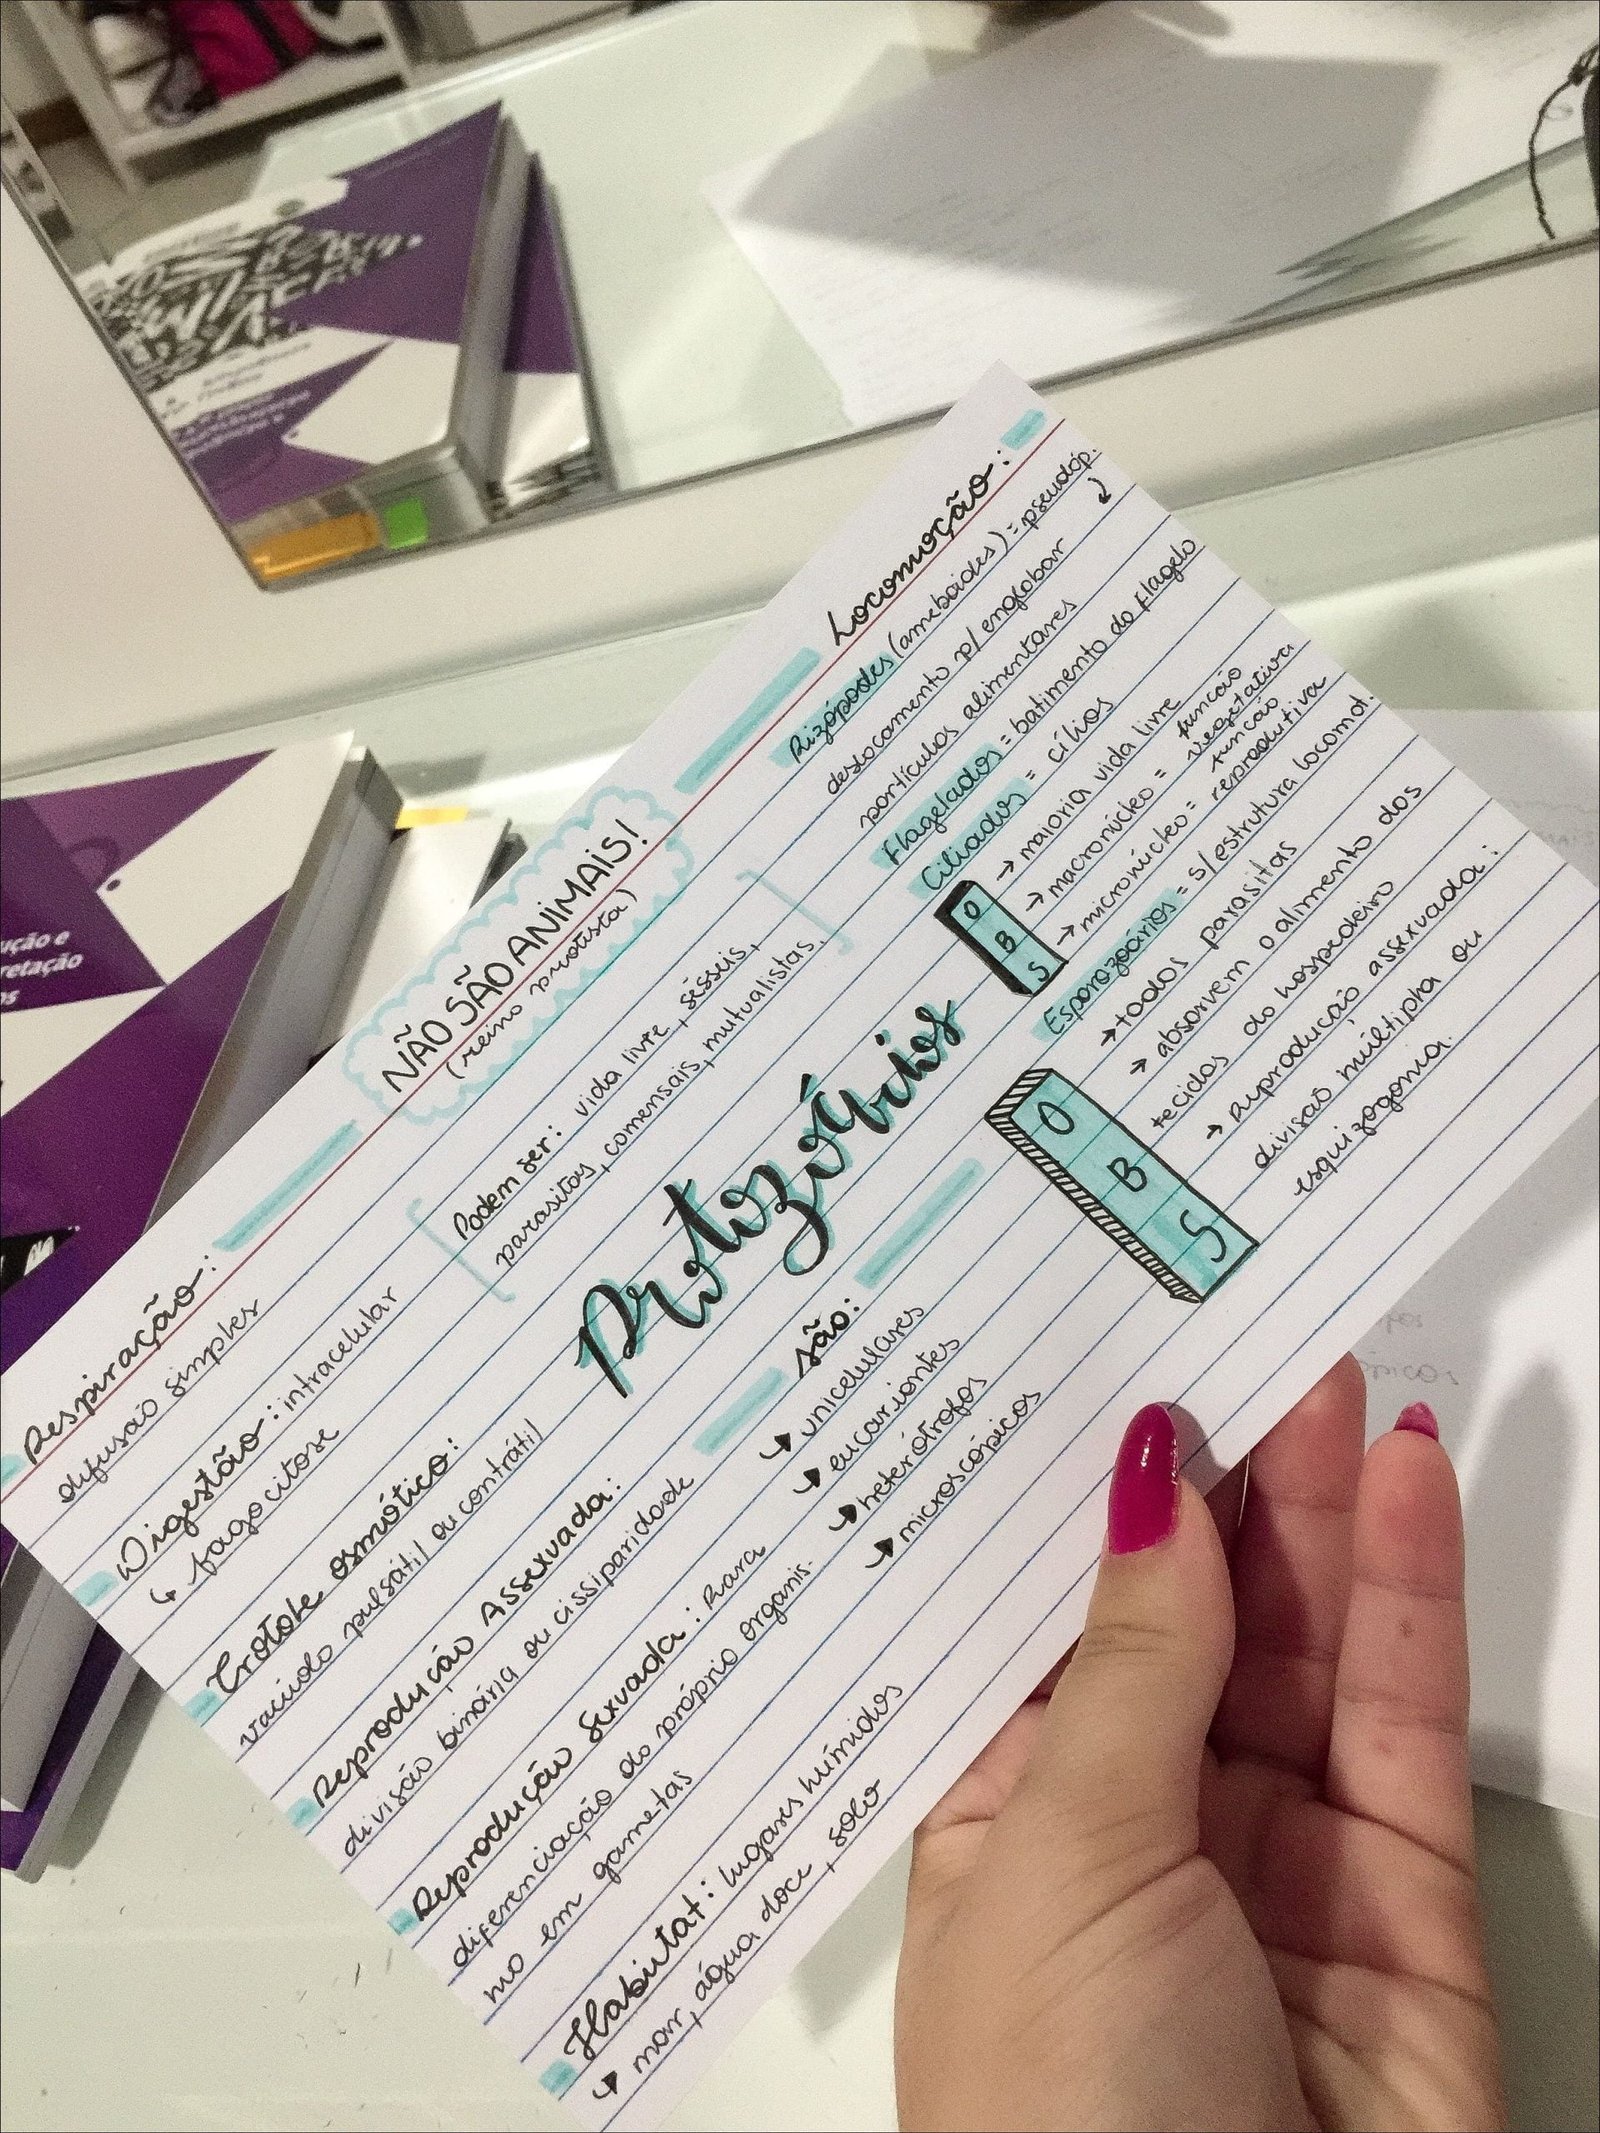 NÃO SÃO ANIMAIS!
(reino protista)
Podem ser: vida livre, sésseis,
parasitas, comensais, mutualistas.
Protozoários
são:
→ unicelulares
→ eucariontes
→ heterótrofos
→ microscópicos
Respiração:
difusão simples
Digestão: intracelular
↳ fagocitose
Crotole osmótico:
vacúolo pulsátil ou contrátil
Reprodução Assexuada:
divisão binária ou cissiparidade
Reprodução Sexuada: Rara
diferenciação do próprio organis.
mo em gametas
Habitat: lugares húmidos
↳ mar, água doce, solo
Locomoção:
Rizópodes (ameboides) = pseudóp.
deslocamento p/ englobar
partículas alimentares
Flagelados = batimento do flagelo
Ciliados = cílios
OBS
→ maioria vida livre
→ macronúcleo = função vegetativa
→ micronúcleo = função reprodutiva
Esporozoários = s/ estrutura locomot.
OBS
→ todos parasitas
→ absorvem o alimento dos
tecidos do hospedeiro
→ reprodução assexuada:
divisão múltipla ou
esquizogonia.
ução e
retação
os